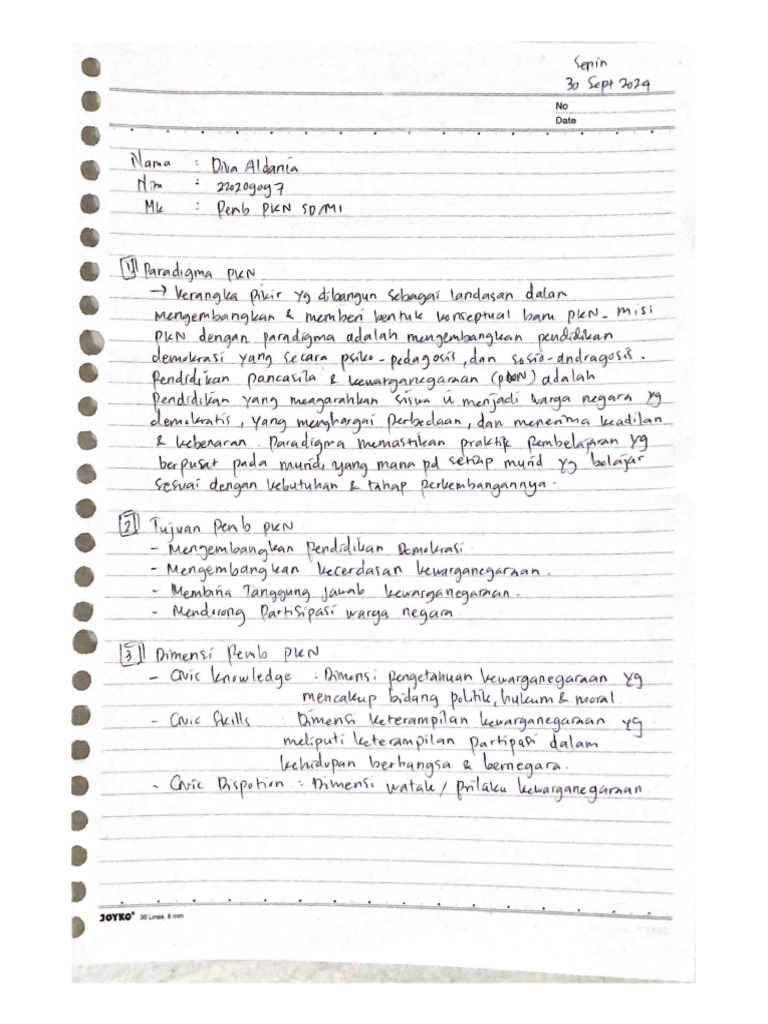 Senin
30 Sept 2024
No
Date
Nama : Diva Aldania
Nim : 220209097
Mk : Pemb PKN SD/MI
1 Paradigma PKN
→ Kerangka pikir yg dibangun sebagai landasan dalam
mengembangkan & memberi bentuk konseptual baru PKN. misi
PKN dengan paradigma adalah mengembangkan pendidikan
demokrasi yang secara psiko-pedagosis, dan sosio-andragosis.
Pendidikan pancasila & kewarganegaraan (PKN) adalah
Pendidikan yang meagarahkan siswa u menjadi warga negara yg
demokratis, yang menghargai perbedaan, dan menerima keadilan
& kebenaran. Paradigma memastikan praktik pembelajaran yg
berpusat pada murid, yang mana pd setiap murid yg belajar
sesuai dengan kebutuhan & tahap perkembangannya.
2 Tujuan Pemb PKN
- Mengembangkan Pendidikan Demokrasi
- Mengembangkan kecerdasan kewarganegaraan.
- Membina Tanggung Jawab kewarganegaraan.
- Mendorong Partisipasi warga negara.
3 Dimensi Pemb PKN
- Civic knowledge : Dimensi pengetahuan kewarganegaraan yg
mencakup bidang politik, hukum & moral.
- Civic Skills : Dimensi keterampilan kewarganegaraan yg
meliputi keterampilan partipasi dalam
kehidupan berbangsa & bernegara.
- Civic Dispotion : Dimensi watak / prilaku kewarganegaraan.
JOYKO® 36 Lines, 6 mm